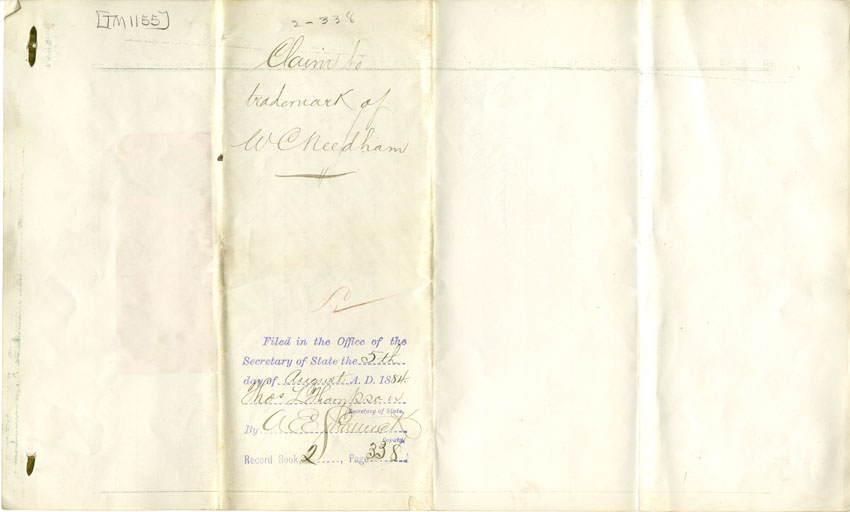 [TM1155]
2-338
Claim to
trademark of
W C Needham
Filed in the Office of the
Secretary of State the 5th
day of August A. D. 1884.
Thos L Thompson
Secretary of State,
By A E
Deputy
Record Book 2, Page 338